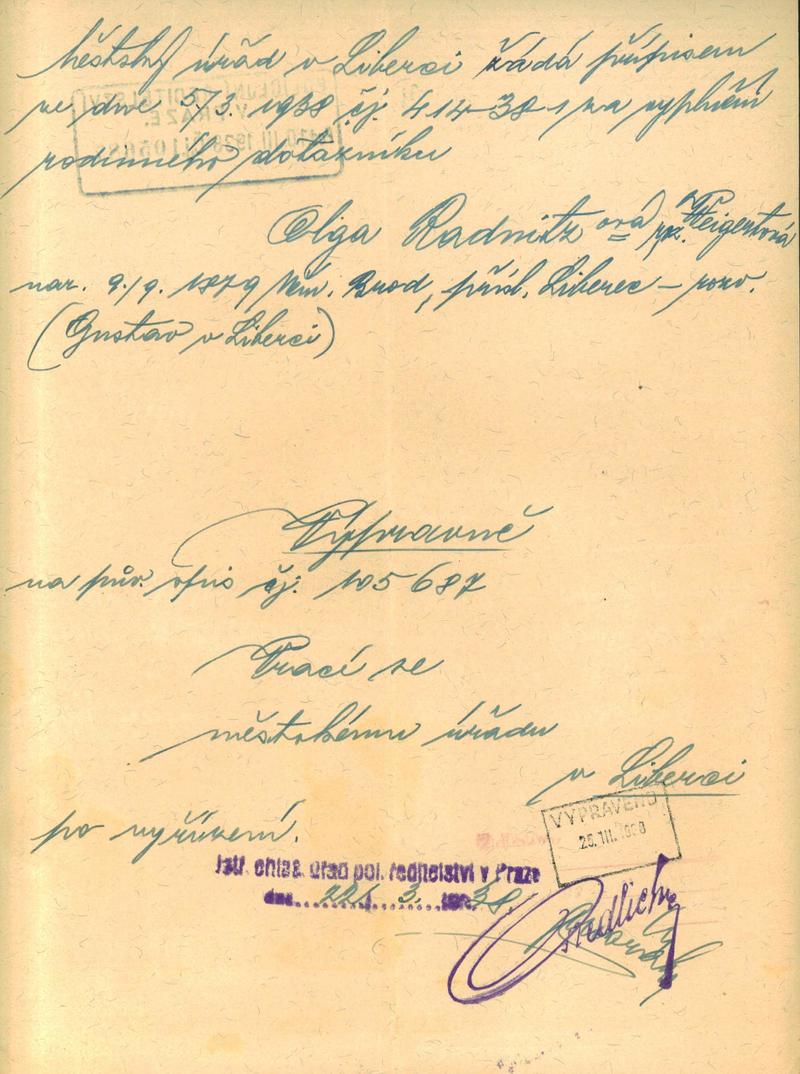 Městský úřad v Liberci žádá přípisem
ze dne 5./3. 1938 čj. 414-38-1 za vyplnění
rodinného dotazníku
Olga Radnitzová roz. Weigertová
nar. 9./9. 1879 Něm. Brod, přísl. Liberec – rozv.
(Gustav v Liberci)
Vypravně
na pův. spis čj. 105687
Vrací se
městskému úřadu
v Liberci
po vyřízení.
VYPRAVENO
25. III. 1938
ohlaš. úřad pol. ředitelství v Praze
dne 22/ 3. 1938.